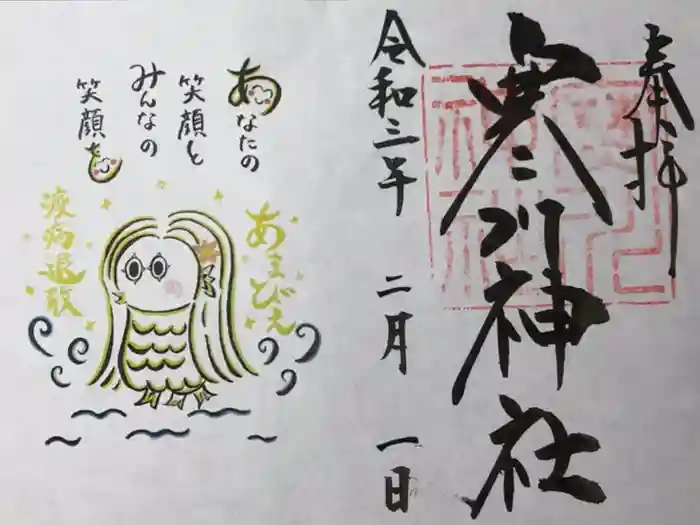 奉拝
寒川神社
令和三年
二月
一日
あなたの
笑顔と
みんなの
笑顔を
あまびえ
疫病退散